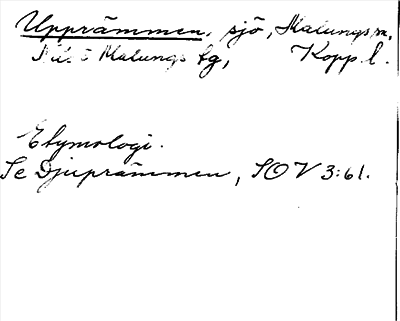 Upprämmen, sjö, Malungs sn,
Malungs tg, Kopp. l.
Etymologi.
Se Djuprämmen, SOV 3:61.